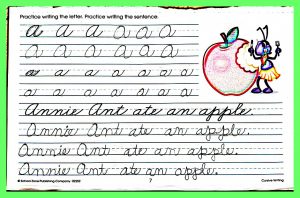 Practice writing the letter. Practice writing the sentence.
a a a a a a
a a a a a a a
a a a a a a a a
a a a a a a a a
Annie Ant ate an apple.
Annie Ant ate an apple.
Annie Ant ate an apple.
Annie Ant ate an apple.
7
Cursive Writing